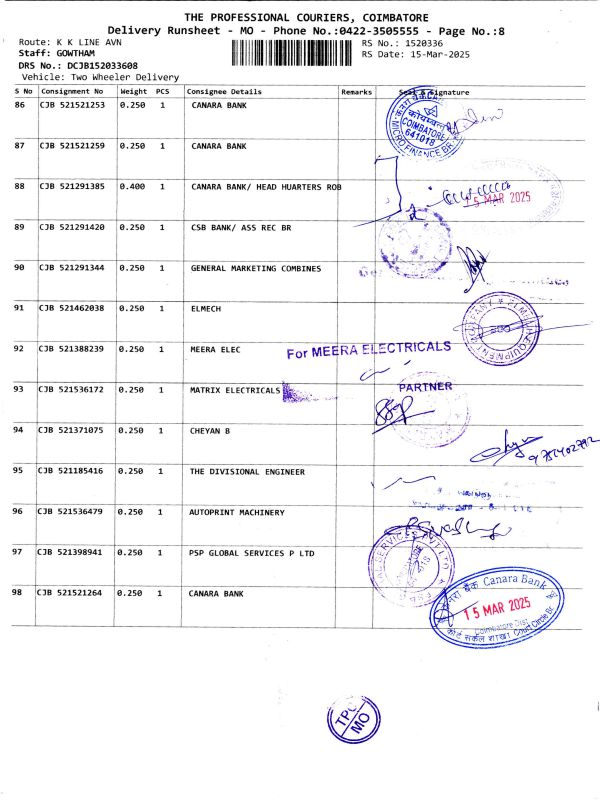 THE PROFESSIONAL COURIERS, COIMBATORE
Delivery Runsheet - MO - Phone No.:0422-3505555 - Page No.:8
Route: K K LINE AVN RS No.: 1520336
Staff: GOWTHAM RS Date: 15-Mar-2025
DRS No.: DCJB152033608
Vehicle: Two Wheeler Delivery
S No Consignment No Weight PCS Consignee Details Remarks Seal & Signature
86 CJB 521521253 0.250 1 CANARA BANK
COIMBATORE
641018
MICRO FINANCE BR
87 CJB 521521259 0.250 1 CANARA BANK
88 CJB 521291385 0.400 1 CANARA BANK/ HEAD HUARTERS ROB
15 MAR 2025
89 CJB 521291420 0.250 1 CSB BANK/ ASS REC BR
90 CJB 521291344 0.250 1 GENERAL MARKETING COMBINES
91 CJB 521462038 0.250 1 ELMECH
92 CJB 521388239 0.250 1 MEERA ELEC
For MEERA ELECTRICALS
93 CJB 521536172 0.250 1 MATRIX ELECTRICALS
PARTNER
94 CJB 521371075 0.250 1 CHEYAN B
95 CJB 521185416 0.250 1 THE DIVISIONAL ENGINEER
96 CJB 521536479 0.250 1 AUTOPRINT MACHINERY
97 CJB 521398941 0.250 1 PSP GLOBAL SERVICES P LTD
98 CJB 521521264 0.250 1 CANARA BANK
केनरा बैंक Canara Bank
15 MAR 2025
Coimbatore Dist
कोर्ट सर्कल शाखा Court Circle Br.
TPC
MO